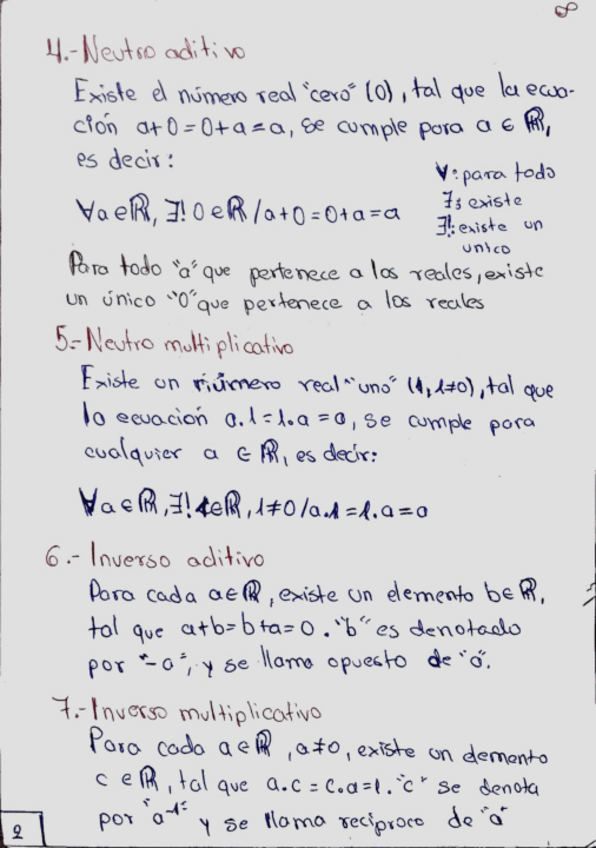 4.-Neutro aditivo
Existe el número real "cero" (0), tal que la ecua-
ción a+0=0+a=a, se cumple para a ∈ ℝ,
es decir:
∀: para todo
∀a∈ℝ, ∃! 0∈ℝ/a+0=0+a=a
∃: existe
∃!: existe un
unico
Para todo "a" que pertenece a los reales, existe
un único "0" que pertenece a los reales
5.-Neutro multiplicativo
Existe un número real "uno" (1, 1≠0), tal que
la ecuación a.1=1.a=a, se cumple para
cualquier a ∈ ℝ, es decir:
∀a∈ℝ, ∃! 1∈ℝ, 1≠0/a.1=1.a=a
6.-Inverso aditivo
Para cada a∈ℝ, existe un elemento b∈ℝ,
tal que a+b=b+a=0. "b" es denotado
por "-a", y se llama opuesto de "a".
7.-Inverso multiplicativo
Para cada a∈ℝ, a≠0, existe un elemento
c ∈ℝ, tal que a.c=c.a=1. "c" se denota
por "a⁻¹" y se llama reciproco de "a"
2